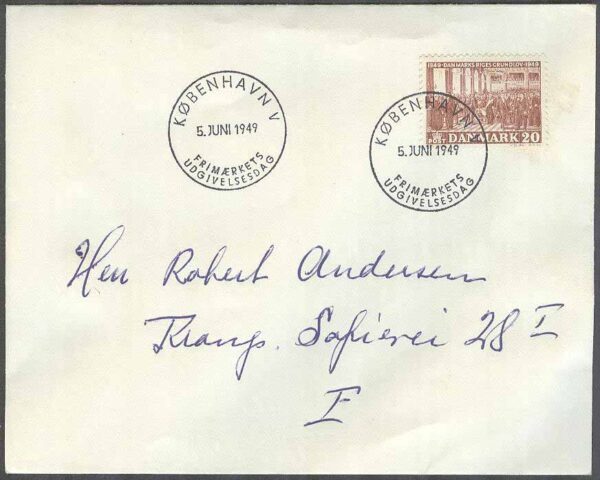 1849-DANMARKS RIGES GRUNDLOV-1949
POST DANMARK 20
KØBENHAVN V
5. JUNI 1949
FRIMÆRKETS
UDGIVELSESDAG
KØBENHAVN V
5. JUNI 1949
FRIMÆRKETS
UDGIVELSESDAG
Herr Robert Andersen
28 I
F